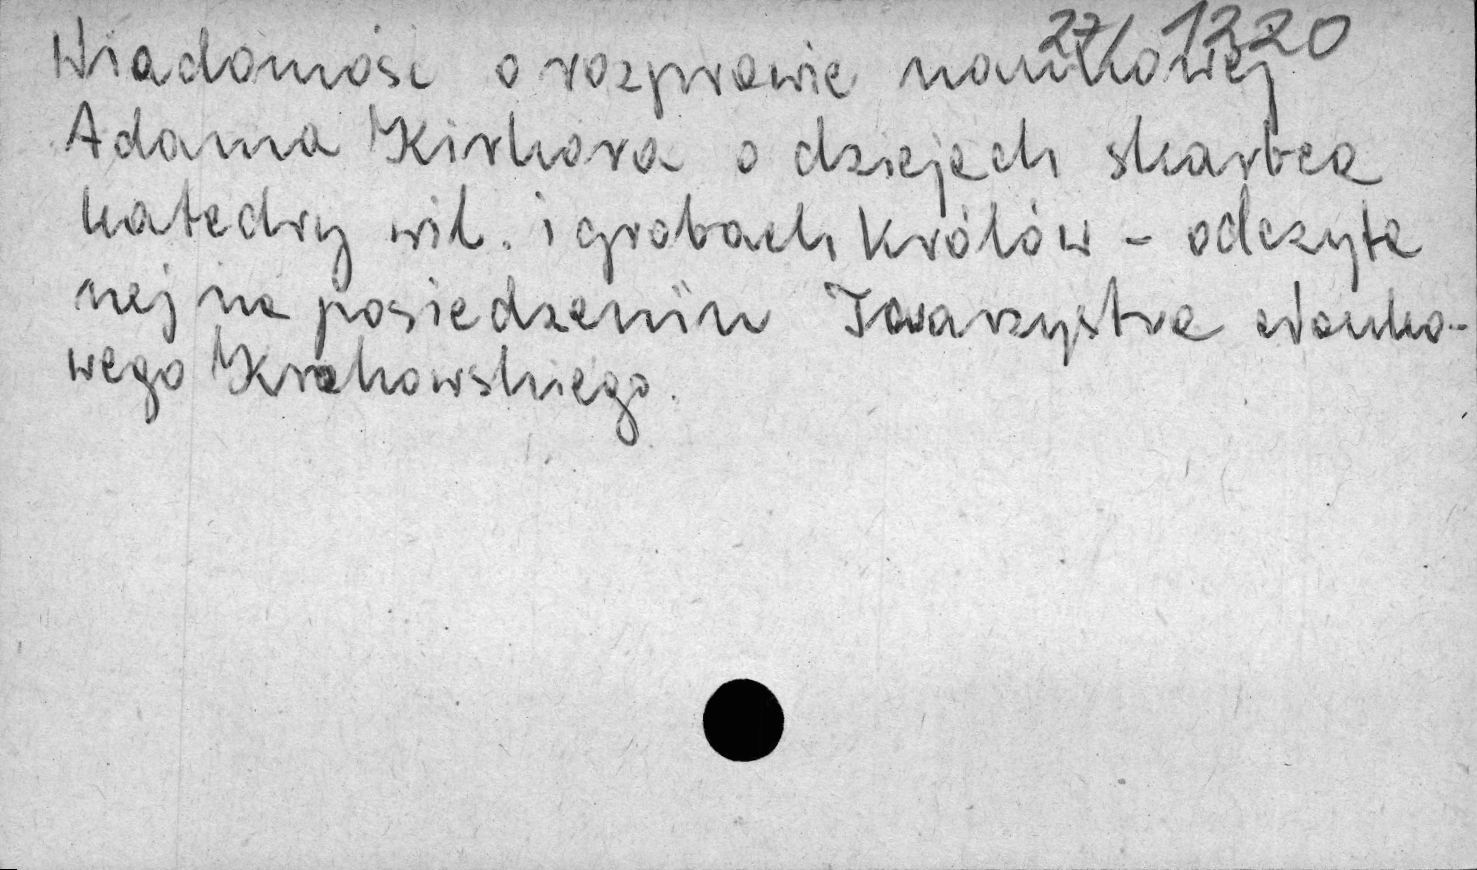 27/1220
Wiadomość o rozprawie naukowej
Adama Kirkora o dziejach skarbca
katedry wil. i grobach królów - odczyta
nej na posiedzeniu Towarzystwa Nauko-
wego Krakowskiego.